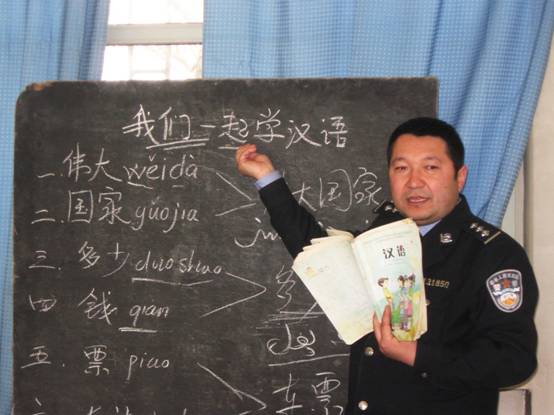 我们一起学汉语
一. 伟大 wěidà
二. 国家 guǒjia
三. 多少 duoshao
四 钱 qian
五. 票 piao
大国家
车票
汉语
31850